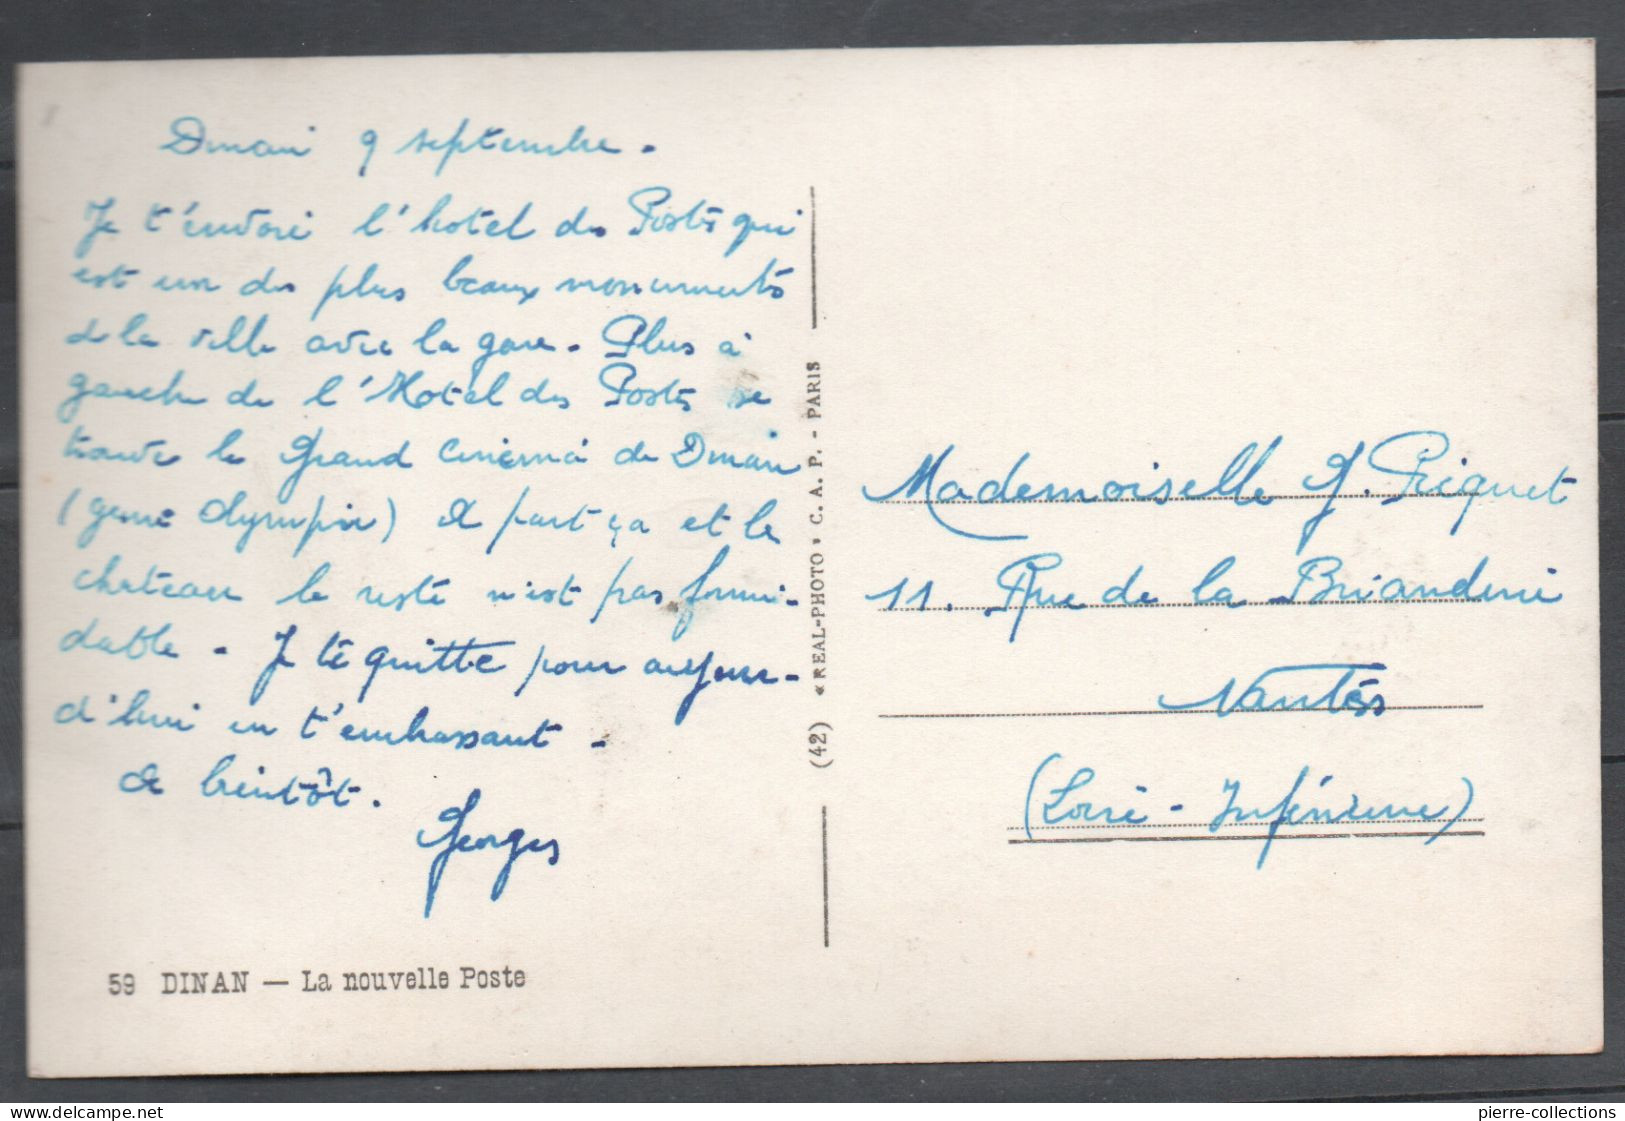 Dinan 9 septembre.
Je t'envoie l'hotel des Postes qui
est un des plus beaux monuments
de la ville avec la gare. Plus à
gauche de l'Hotel des Postes se
trouve le Grand Cinéma de Dinan
(genre Olympia) A part ça et le
château le reste n'est pas formi-
dable. Je te quitte pour aujour-
d'hui en t'embrassant.
A bientôt.
Georges
59 DINAN — La nouvelle Poste
(42) « REAL-PHOTO » C. A. P. - PARIS
Mademoiselle J. Priquet
11. Rue de la Brianderie
Nantes
(Loire-Inférieure)
www.delcampe.net
pierre-collections